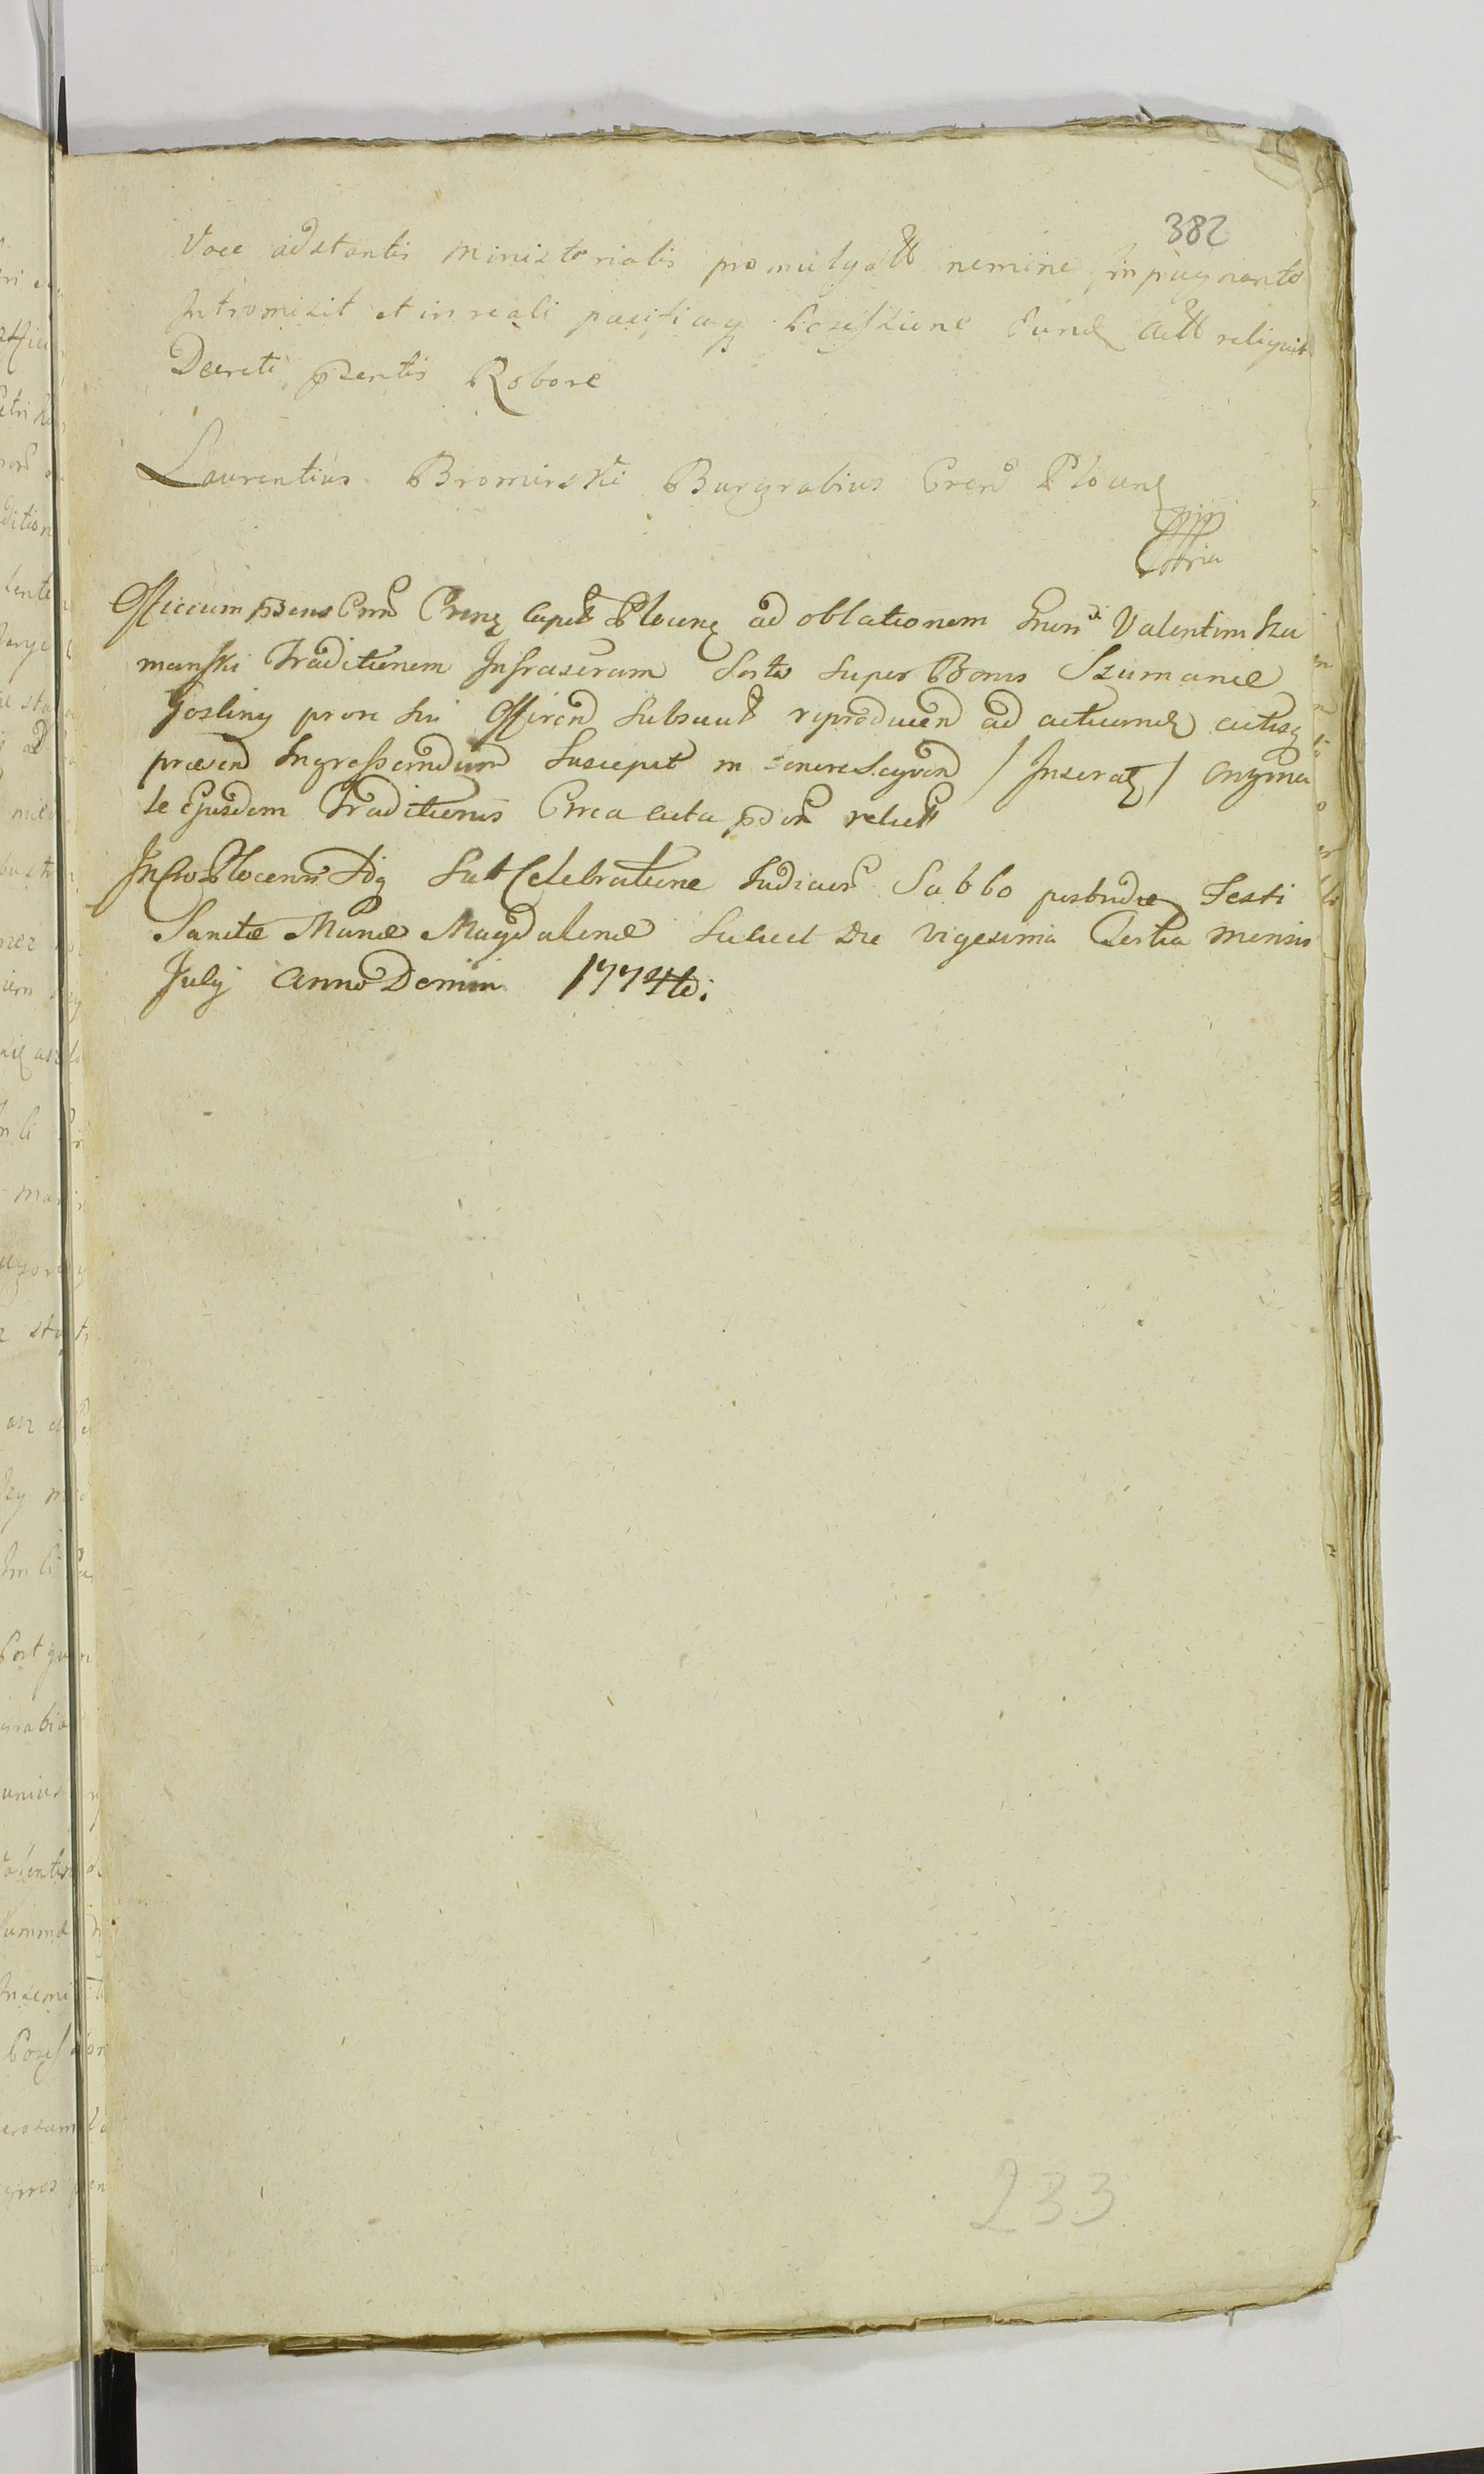 382
Voce adstantis Ministerialis promulgatt nemine impugnante
Intromisit et in reali pacificaq Possessione Eund actt reliquit
Decreti psentis Robore
Laurentius Bromirski Burgrabius Cren Plocens
Officium psens Crens Capit Plocens ad oblationem Gnen Valentini Szu
manski Traditionem Infrascram Sortis super Bonis Szumanie
Gosliny pro re sui Officen subsecut reproducen ad acticand actisq
praesen Ingrossandum suscepit in tenore seqven / Inserat / Origina
le Ejusdem Traditionis Circa acta relictt
In Cro Plocensi Sub Celebratione Judicior Sabbo postridie Festi
Sanctae Mariae Magdalenae scilicet Die vigesima Tertia mensis
July Anno Domini 1774to:
233